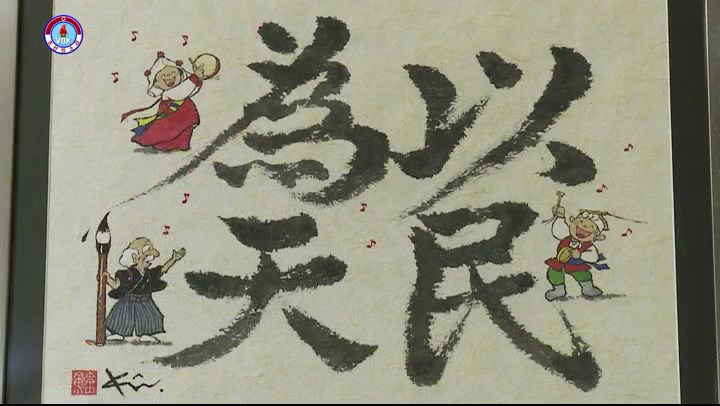 以民
為天
VOK